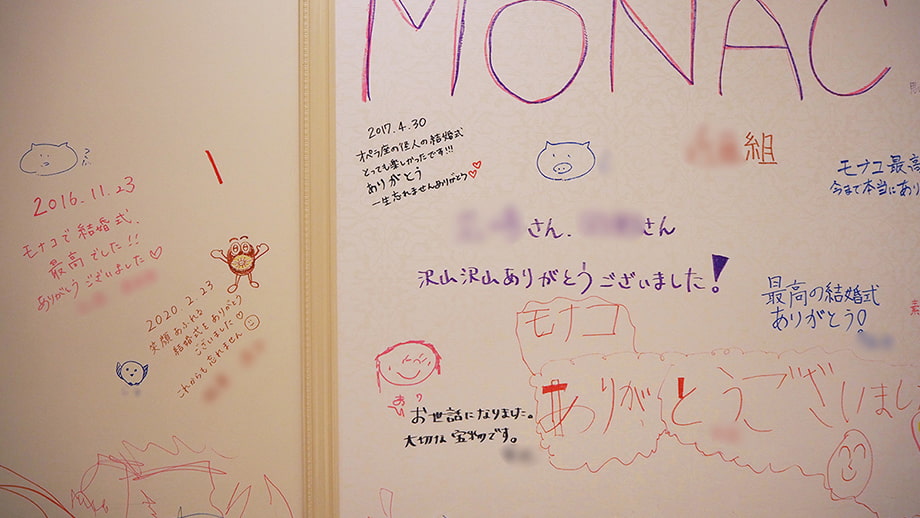 MONAC
2016.11.23
モナコで結婚式、
最高でした!!
ありがとうございました♡
2020.2.23
笑顔あふれる
結婚式をありがとう
ございました♡
これからも忘れません
2017.4.30
オペラ座の怪人の結婚式
とっても楽しかったです!!!
ありがとう
一生忘れませんありがとう♡
組
さん、さん
沢山沢山ありがとうございました!
モナコ最高
今まで本当にあり
最高の結婚式
ありがとう!
モナコ
ありがとうございまし
お世話になりました。
大切な宝物です。